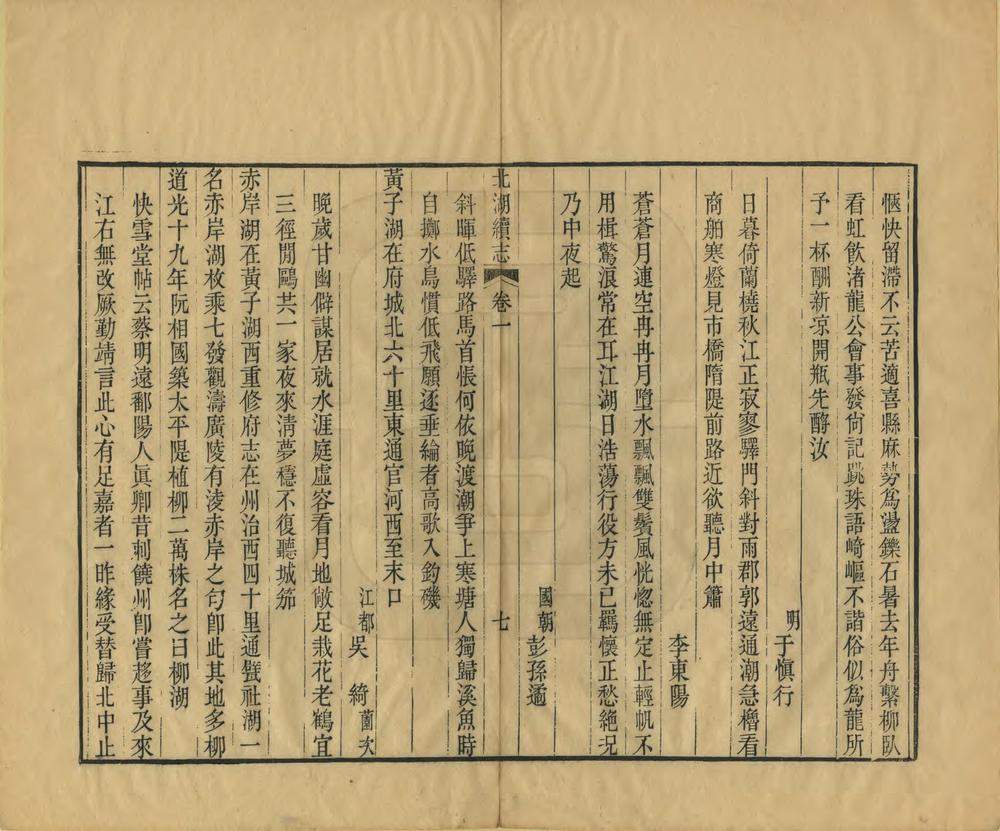 愜快留滯不云苦適喜縣麻勢為盪鑠石暑去年舟繫柳臥
看虹飲渚龍公會事發何記跳珠語崎嶇不諧俗似為龍所
予一杯酬新凉開瓶先酹汝
明于愼行
日暮倚蘭橈秋江正寂寥驛門斜對雨郡郭遠通潮急櫓看
商舶寒燈見市橋隋隄前路近欲聽月中簫
李東陽
蒼蒼月連空冉冉月墮水飄飄雙鬢風恍惚無定止輕帆不
用楫驚浪常在耳江湖日浩蕩行役方未已羈懷正愁絶況
乃中夜起
國朝彭孫遹
北湖續志 卷一 七
斜暉低驛路馬首悵何依晚渡潮爭上寒塘人獨歸溪魚時
自擲水鳥慣低飛願逐垂綸者高歌入釣磯
黃子湖在府城北六十里東通官河西至末口
江都吳 綺薗次
晚歲甘幽僻謀居就水涯庭虛容看月地敞足栽花老鶴宜
三徑閒鷗共一家夜來淸夢穩不復聽城笳
赤岸湖在黃子湖西重修府志在州治西四十里通甓社湖一
名赤岸湖枚乘七發觀濤廣陵有淩赤岸之句卽此其地多柳
道光十九年阮相國築太平隄植柳二萬株名之曰柳湖
快雪堂帖云蔡明遠鄱陽人眞卿昔刺饒州卽嘗趍事及來
江右無改厥勤靖言此心有足嘉者一昨緣受替歸北中止